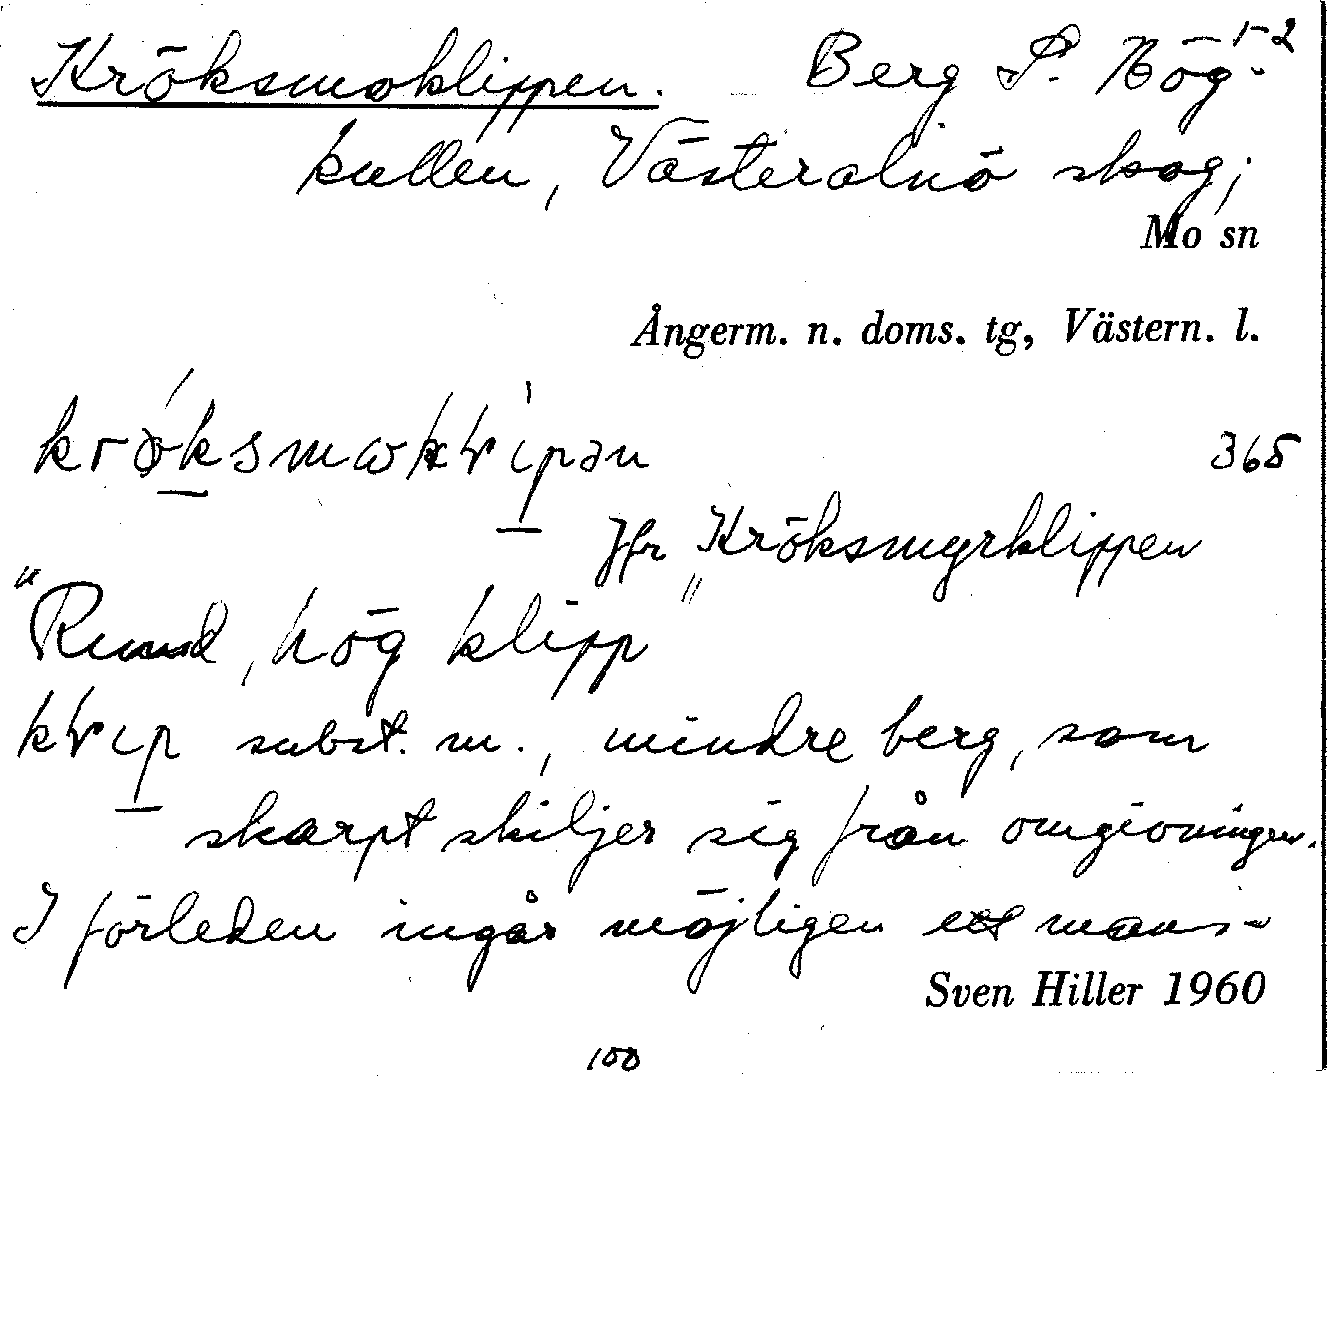 Kröksmoklippen. Berg S. Hög- 1-2
kullen, Västeralnö skog;
Mo sn
Ångerm. n. doms. tg, Västern. l.
365
Jfr Kröksmyrklippen
"Rund, hög klipp"
subst. m., mindre berg, som
skarpt skiljer sig från omgivningen.
I förleden ingår möjligen ett mans-
Sven Hiller 1960
100